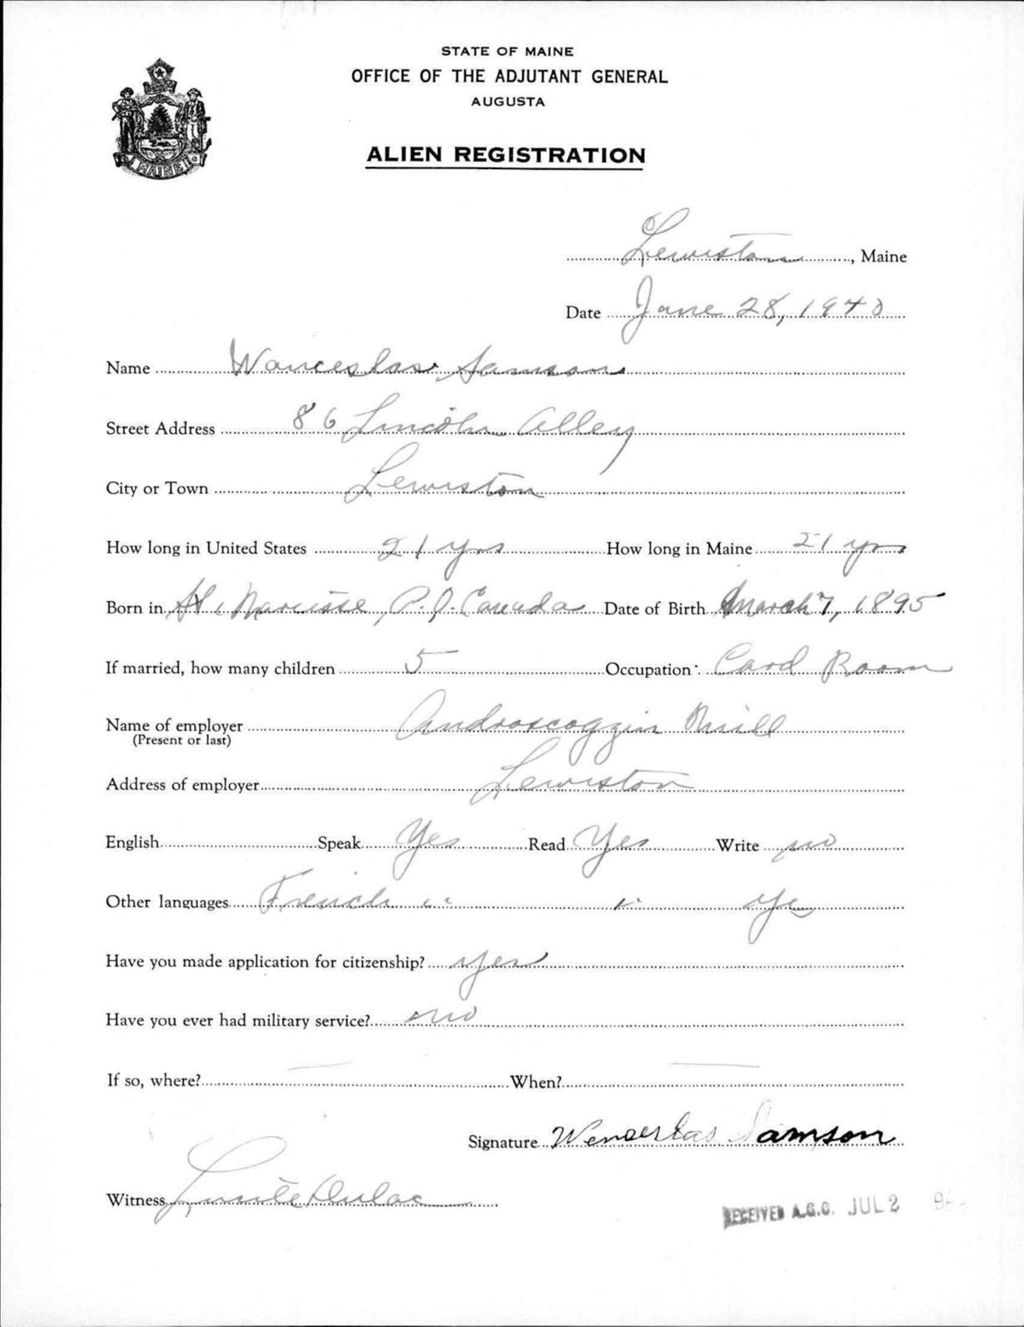 STATE OF MAINE
OFFICE OF THE ADJUTANT GENERAL
AUGUSTA
ALIEN REGISTRATION
MAINE
Lewiston, Maine
Date June 28, 1940
Name Wanceslas Samson
Street Address 86 Lincoln Alley
City or Town Lewiston
How long in United States 21 yrs How long in Maine 21 yrs
Born in St. Narcisse P.Q. Canada Date of Birth March 7, 1895
If married, how many children 5 Occupation Card Room
Name of employer Androscoggin Mill
(Present or last)
Address of employer Lewiston
English Speak Yes Read Yes Write no
Other languages French " " yes
Have you made application for citizenship? yes
Have you ever had military service? no
If so, where? — When? —
Signature Wenseslas Samson
Witness Lucile Dulac
RECEIVED A.G.O. JUL 2